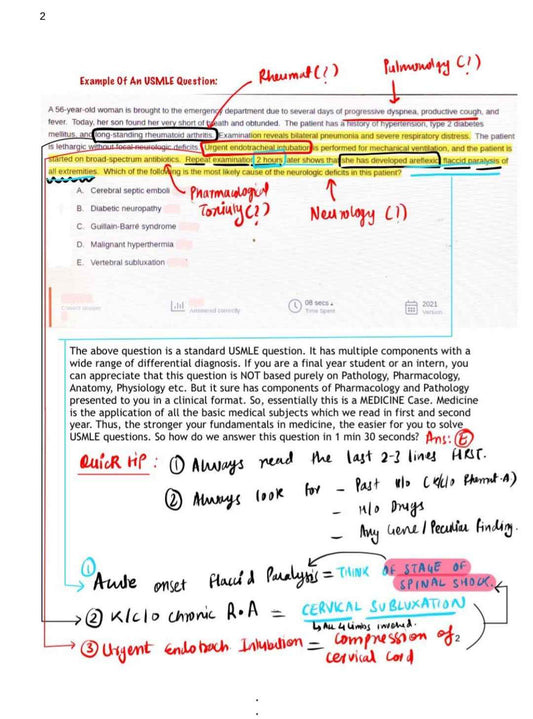 2
Example Of An USMLE Question:
Rheumat(?)
Pulmonolgy (?)
A 56-year-old woman is brought to the emergency department due to several days of progressive dyspnea, productive cough, and
fever. Today, her son found her very short of breath and obtunded. The patient has a history of hypertension, type 2 diabetes
mellitus, and long-standing rheumatoid arthritis. Examination reveals bilateral pneumonia and severe respiratory distress. The patient
is lethargic without focal neurologic deficits. Urgent endotracheal intubation is performed for mechanical ventilation, and the patient is
started on broad-spectrum antibiotics. Repeat examination 2 hours later shows that she has developed areflexic flaccid paralysis of
all extremities. Which of the following is the most likely cause of the neurologic deficits in this patient?
A. Cerebral septic emboli
B. Diabetic neuropathy
C. Guillain-Barré syndrome
D. Malignant hyperthermia
E. Vertebral subluxation
Pharmacological
Toxicity(?)
Neurology (?)
Correct answer
Answered correctly
08 secs
Time Spent
2021
Version
The above question is a standard USMLE question. It has multiple components with a
wide range of differential diagnosis. If you are a final year student or an intern, you
can appreciate that this question is NOT based purely on Pathology, Pharmacology,
Anatomy, Physiology etc. But it sure has components of Pharmacology and Pathology
presented to you in a clinical format. So, essentially this is a MEDICINE Case. Medicine
is the application of all the basic medical subjects which we read in first and second
year. Thus, the stronger your fundamentals in medicine, the easier for you to solve
USMLE questions. So how do we answer this question in 1 min 30 seconds? Ans: E
Quick tip : 1 Always read the last 2-3 lines FIRST.
2 Always look for - Past H/o (K/c/o Rheumt.A)
- H/o Drugs
- Any Gene/Peculiar Finding.
1 Acute onset flaccid Paralysis = THINK OF STAGE OF
SPINAL SHOCK.
2 K/c/o chronic R.A = CERVICAL SUBLUXATION
↳ All 4 limbs involved.
3 Urgent Endotrach Intubation = compression of
cervical cord
2